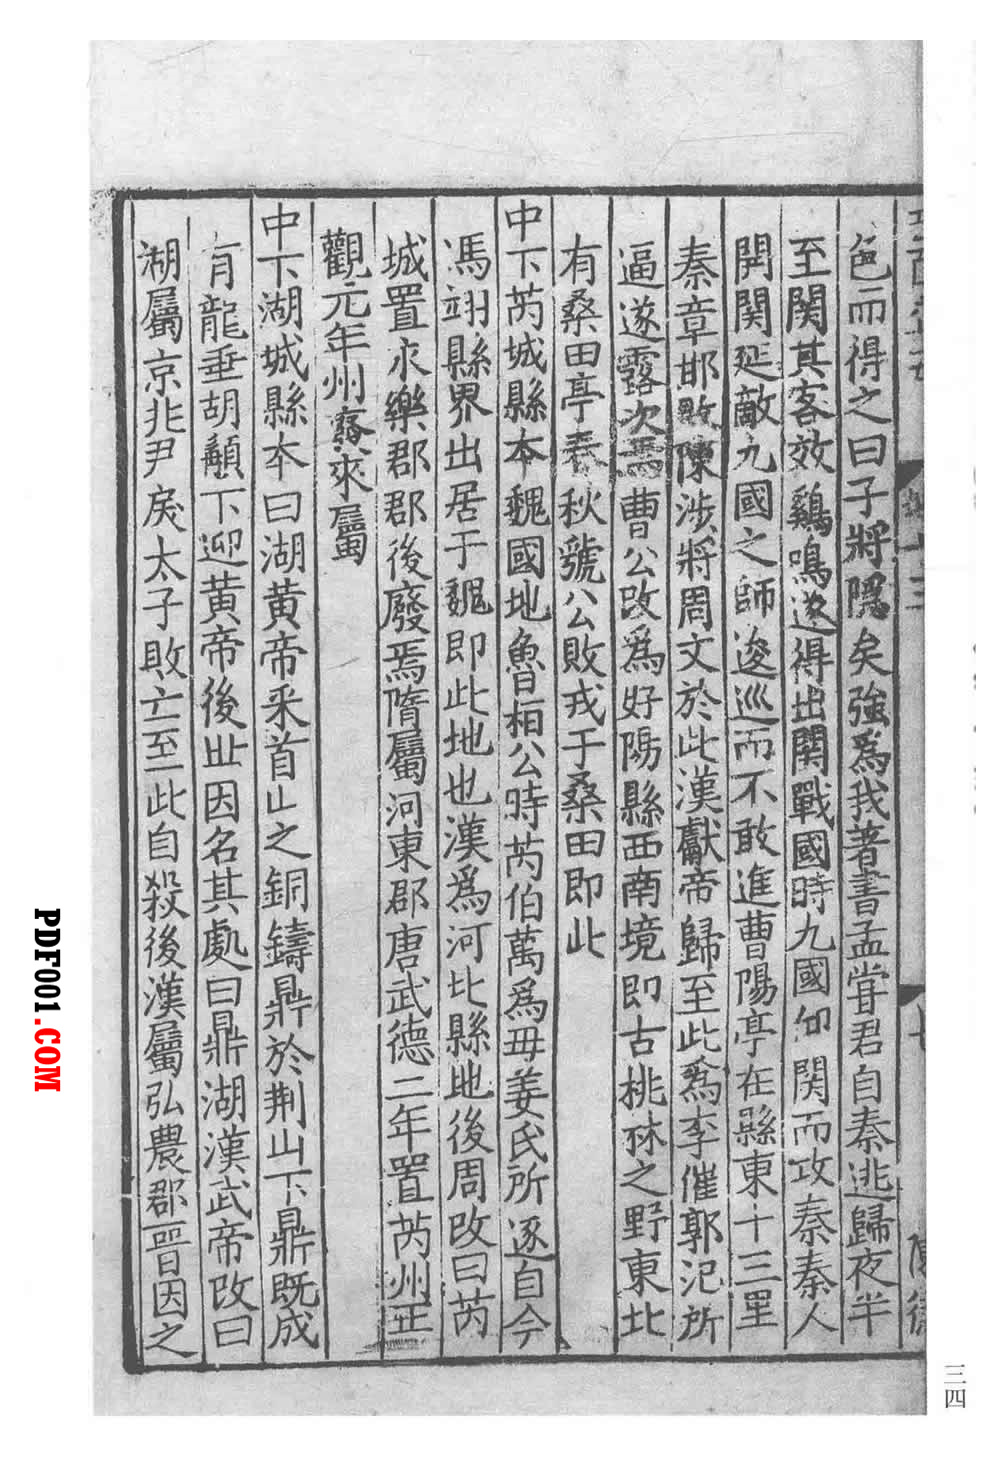 色而得之曰子將隱矣強爲我著書孟甞君自秦逃歸夜半
至関其客效鷄鳴遂得出関戰國時九國仰関而攻秦秦人
開関延敵九國之師逡巡而不敢進曹陽亭在縣東十三里
秦章邯敗陳涉將周文於此漢獻帝歸至此爲李傕郭汜所
逼遂露次焉曹公改爲好陽縣西南境即古桃林之野東北
有桑田亭春秋虢公敗戎于桑田即此
中下芮城縣本魏國地魯桓公時芮伯萬爲毋姜氏所逐自今
馮翊縣界出居于魏即此地也漢爲河北縣地後周改曰芮
城置永樂郡郡後廢焉隋屬河東郡唐武德二年置芮州正
觀元年州廢來屬
中下湖城縣本曰湖黄帝采首山之銅鑄鼎於荆山下鼎既成
有龍垂胡顬下迎黄帝後世因名其處曰鼎湖漢武帝改曰
湖屬京兆尹戾太子敗亡至此自殺後漢屬弘農郡晉因之
三四
PDF001.COM